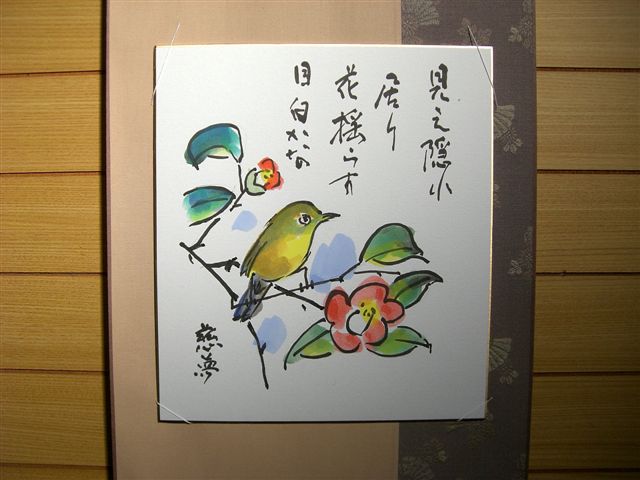 見え隠れ
居り
花揺らす
目白かな
慈夢